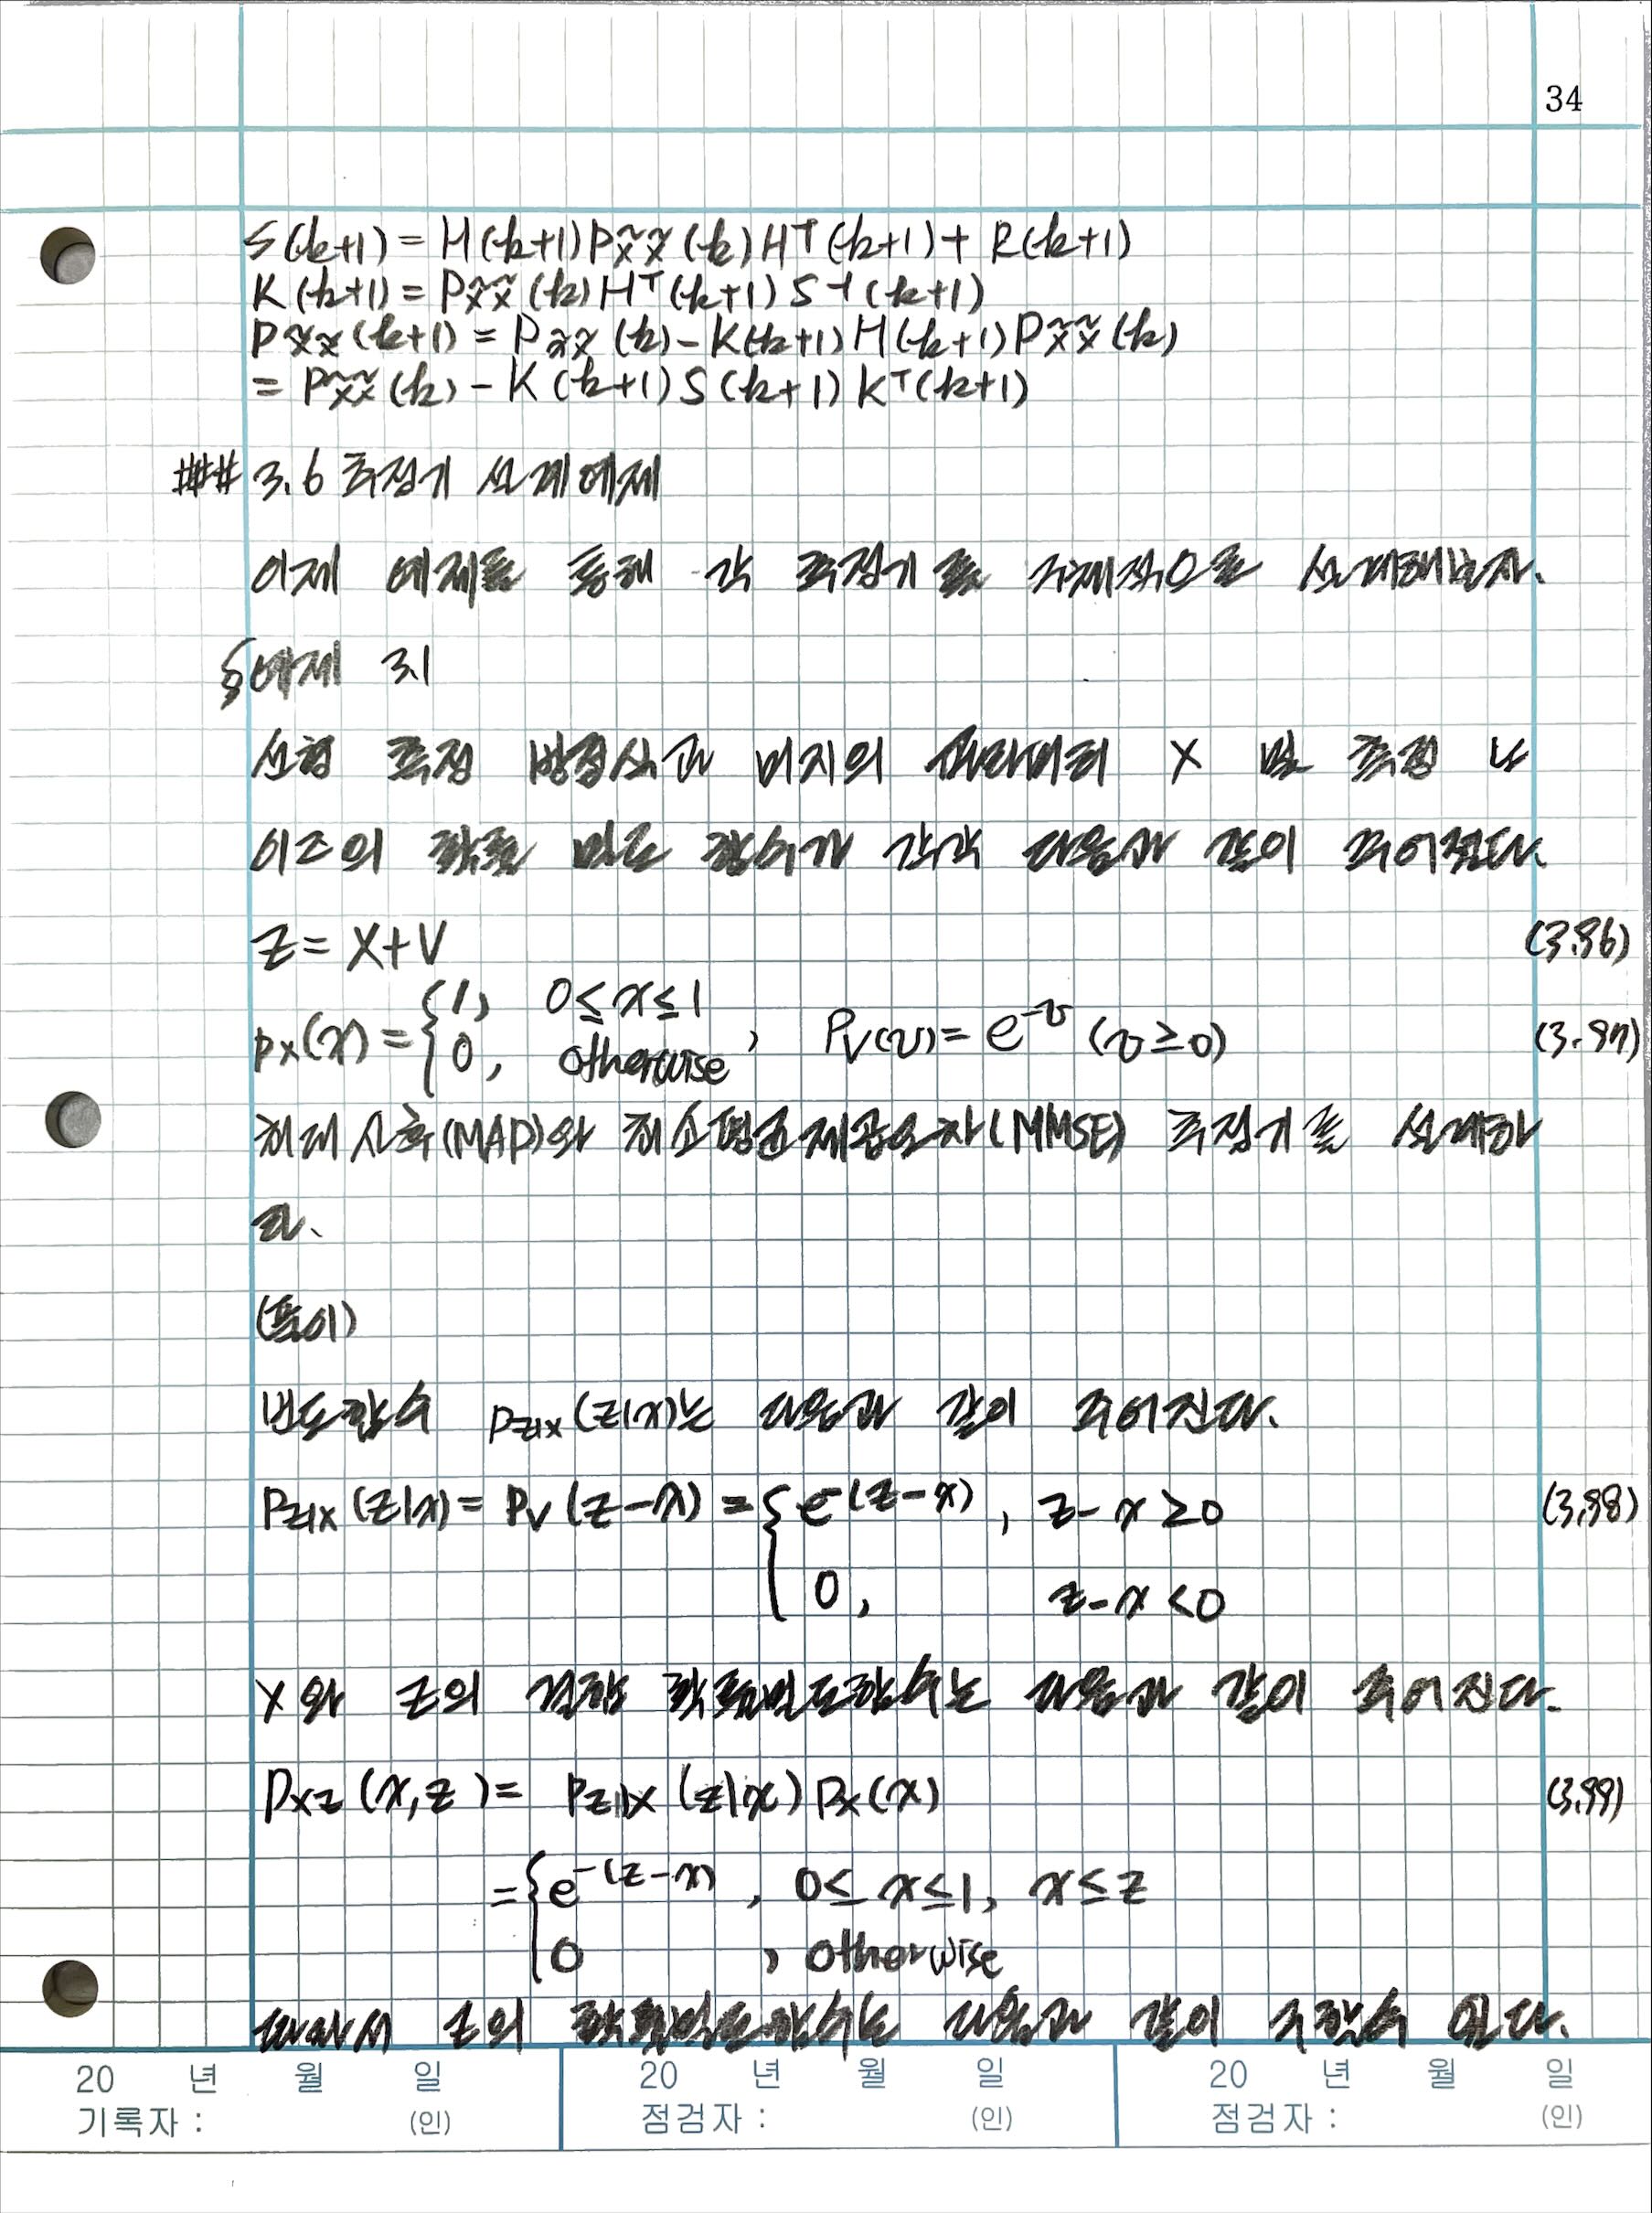 34
S(k+1) = H(k+1)Px̃x̃(k)Hᵀ(k+1) + R(k+1)
K(k+1) = Px̃x̃(k)Hᵀ(k+1)S⁻¹(k+1)
Px̃x̃(k+1) = Px̃x̃(k) - K(k+1)H(k+1)Px̃x̃(k)
= Px̃x̃(k) - K(k+1)S(k+1)Kᵀ(k+1)
### 3.6 추정기 설계 예제
이제 예제를 통해 각 추정기를 구체적으로 설계해보자.
§예제 3.1
선형 측정 방정식과 미지의 파라미터 X 및 측정 노
이즈의 확률 밀도 함수가 각각 다음과 같이 주어졌다.
Z = X+V (3.86)
pX(x) = { 1, 0≤x≤1
0, otherwise , PV(v) = e^-v (v≥0) (3.87)
최대사후(MAP)와 최소평균제곱오차(MMSE) 추정기를 설계하
라.
(풀이)
빈도함수 pZ|X(z|x)는 다음과 같이 주어진다.
PZ|X(z|x) = PV(z-x) = { e^-(z-x), z-x≥0 (3.88)
0, z-x<0
X와 Z의 결합 확률밀도함수는 다음과 같이 주어진다.
PXZ(x,z) = PZ|X(z|x)PX(x) (3.89)
= { e^-(z-x), 0≤x≤1, x≤z
0 , otherwise
따라서 Z의 확률밀도함수는 다음과 같이 구할수 있다.
20 년 월 일 20 년 월 일 20 년 월 일
기록자 : (인) 점검자 : (인) 점검자 : (인)